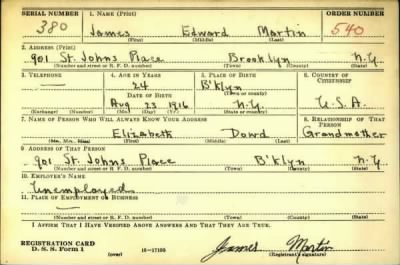 SERIAL NUMBER 1. NAME (Print) ORDER NUMBER
380 James Edward Martin 540
(First) (Middle) (Last)
2. ADDRESS (Print)
901 St. Johns Place Brooklyn N.Y.
(Number and street or R. F. D. number) (Town) (County) (State)
3. TELEPHONE 4. AGE IN YEARS 5. PLACE OF BIRTH 6. COUNTRY OF CITIZENSHIP
— 24 B'klyn
(Town or county)
DATE OF BIRTH
Aug 23 1916 N.Y. U.S.A.
(Exchange) (Number) (Mo.) (Day) (Yr.) (State or country)
7. NAME OF PERSON WHO WILL ALWAYS KNOW YOUR ADDRESS 8. RELATIONSHIP OF THAT PERSON
Elizabeth Dowd Grandmother
(Mr., Mrs., Miss) (First) (Middle) (Last)
9. ADDRESS OF THAT PERSON
901 St. Johns Place B'klyn N.Y.
(Number and street or R. F. D. number) (Town) (County) (State)
10. EMPLOYER'S NAME
Unemployed
11. PLACE OF EMPLOYMENT OR BUSINESS
—
(Number and street or R. F. D. number) (Town) (County) (State)
I AFFIRM THAT I HAVE VERIFIED ABOVE ANSWERS AND THAT THEY ARE TRUE.
REGISTRATION CARD
D. S. S. Form 1 (over) 16—17105 James Martin
(Registrant's signature)